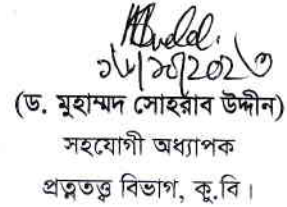 (ড. মুহাম্মদ সোহরাব উদ্দীন)
সহযোগী অধ্যাপক
প্রত্নতত্ত্ব বিভাগ, কু.বি।